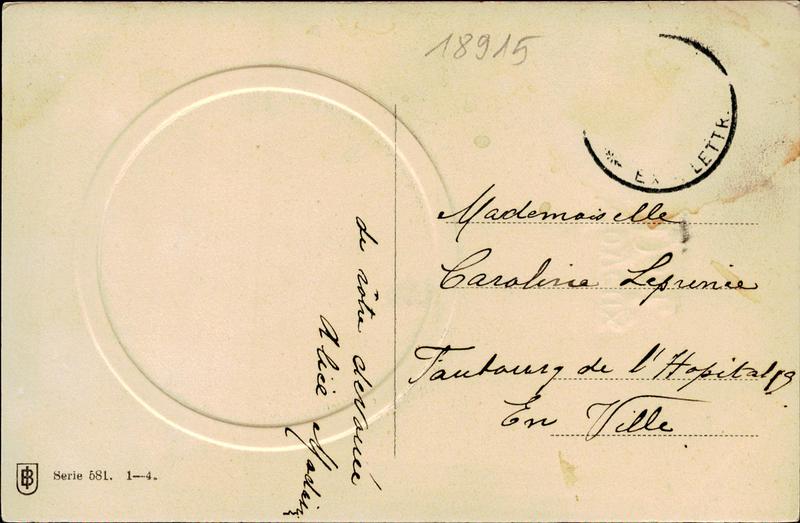 18915
EX LETTR.
Mademoiselle
Caroline
Faubourg de l'Hopital 19
En Ville
de vôtre dévouée
Alice
Serie 581. 1—4.